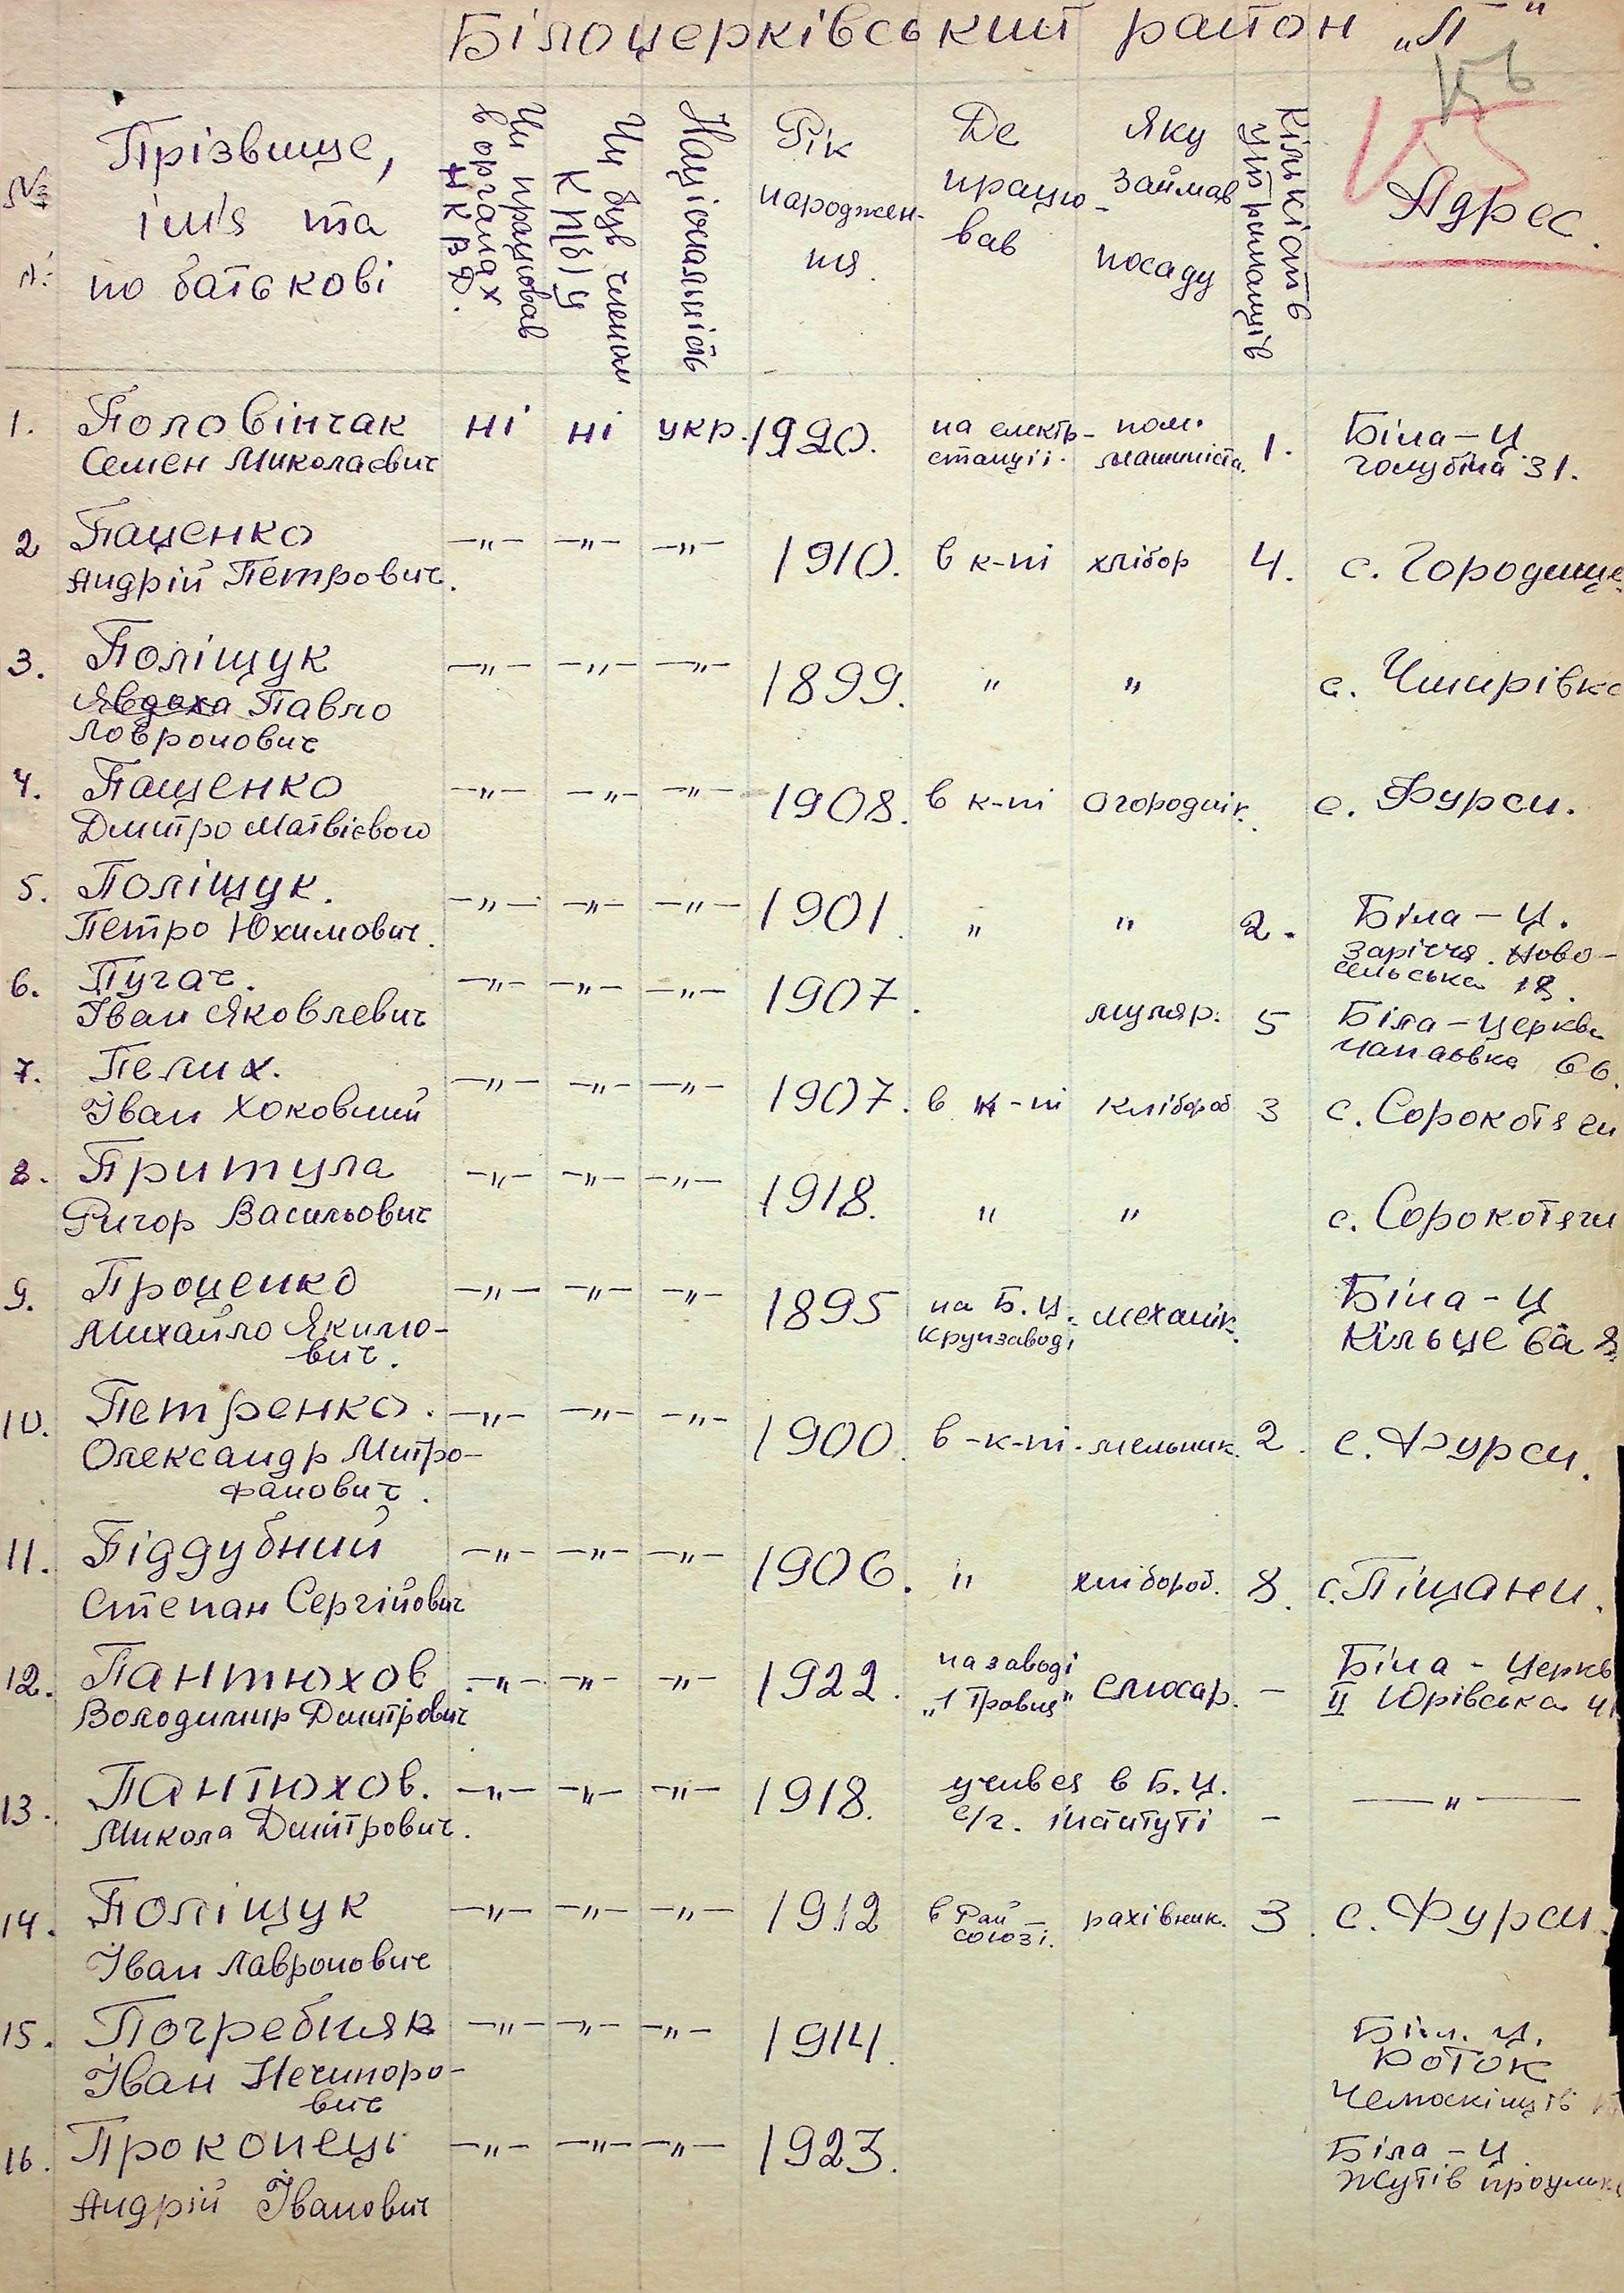 Білоцерківський район „П"
156
155
№ №
Прізвище,
ім'я та
по батькові
Чи працював
в органах
НКВД.
Чи був членом
КП(б)У
Національність
Рік
народжен-
ня.
Де
працю-
вав
Яку
займав
посаду
Кількість
утриманців
Адрес.
1. Половінчак ні ні укр. 1920. на електр- пом. 1. Біла-Ц
Семен Миколаєвич станції. машиніста. голубіна 31.
2 Паценко —„— —„— —„— 1910. в к-пі хлібор 4. с. Городище
Андрій Петрович.
3. Поліщук —„— —„— —„— 1899. „ „ с. Чмирівка
Явдоха Павло
Лавронович
4. Пащенко —„— —„— —„— 1908. в к-пі огороднік. с. Фурси.
Дмитро Матвієвич
5. Поліщук. —„— —„— —„— 1901. „ „ 2. Біла-Ц.
Петро Юхимович. Заріччя. Ново-
сельська 18.
6. Пугач. —„— —„— —„— 1907. муляр. 5 Біла-Церква
Іван Яковлевич 66.
7. Пелих. —„— —„— —„— 1907. в к-пі хлібороб 3 с. Сорокотяги
Іван
8. Притула —„— —„— —„— 1918. „ „ с. Сорокотяги
Григор Васильович
9. Проценко —„— —„— —„— 1895 на Б.Ц. механік. Біла-Ц
Михайло Якимо- крупзаводі Кільце
вич.
10. Петренко. —„— —„— —„— 1900. в-к-пі. мельник. 2. с. Фурси.
Олександр Митро-
фанович.
11. Піддубний —„— —„— —„— 1906. „ хлібороб. 8. с. Піщани.
Степан Сергійович
12. Пантюхов —„— —„— —„— 1922. на заводі слюсар. — Біла-Церкв
Володимир Дмитрович „1 Травня" II Юрівська
13. Пантюхов. —„— —„— —„— 1918. учився в Б.Ц. — —„—
Микола Дмитрович. с/г. інституті
14. Поліщук —„— —„— —„— 1912 в Рай- рахівник. 3. с. Фурси.
Іван Лавронович союзі.
15. Погребняк —„— —„— —„— 1914. Біл. Ц.
Іван Нечипоро- Роток
вич
16. Проконець —„— —„— —„— 1923. Біла-Ц
Андрій Іванович